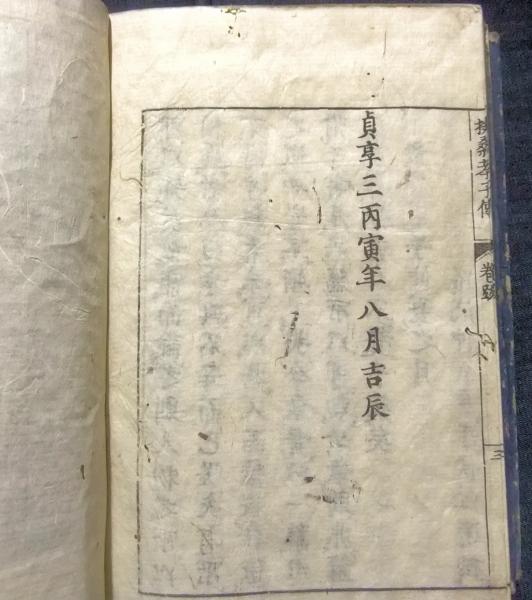 貞享三丙寅年八月吉辰
扶桑孝子傳
卷跋
三